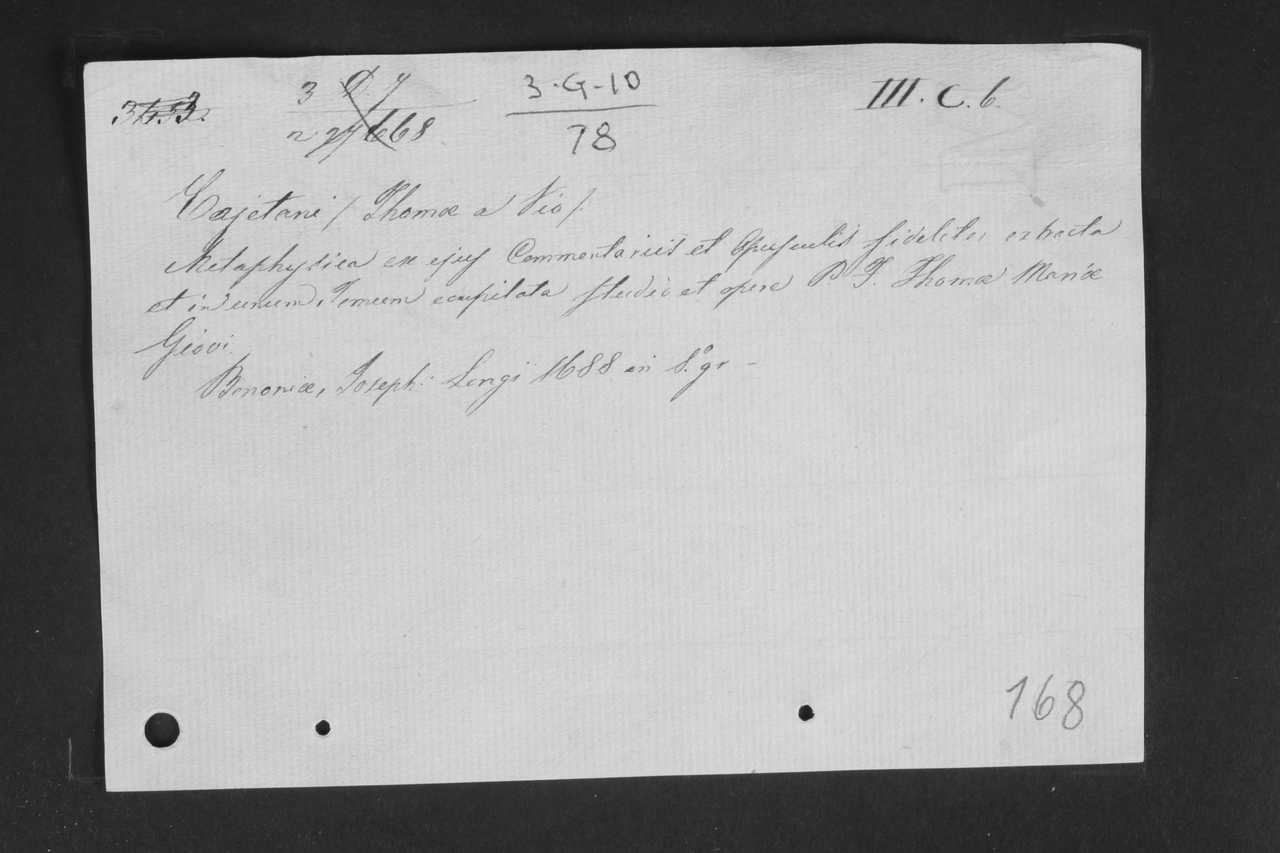 3-G-10
78
III. C. 6.
Cajetani / Thomæ a Vio /.
Metaphysica ex ejus Commentariis et Opusculis fideliter extracta
et in unum Tomum compilata studio et opera P. F. Thomæ Mariæ
Giovi.
Bononiæ, Joseph: Longi 1688 en 8.º gr -
168